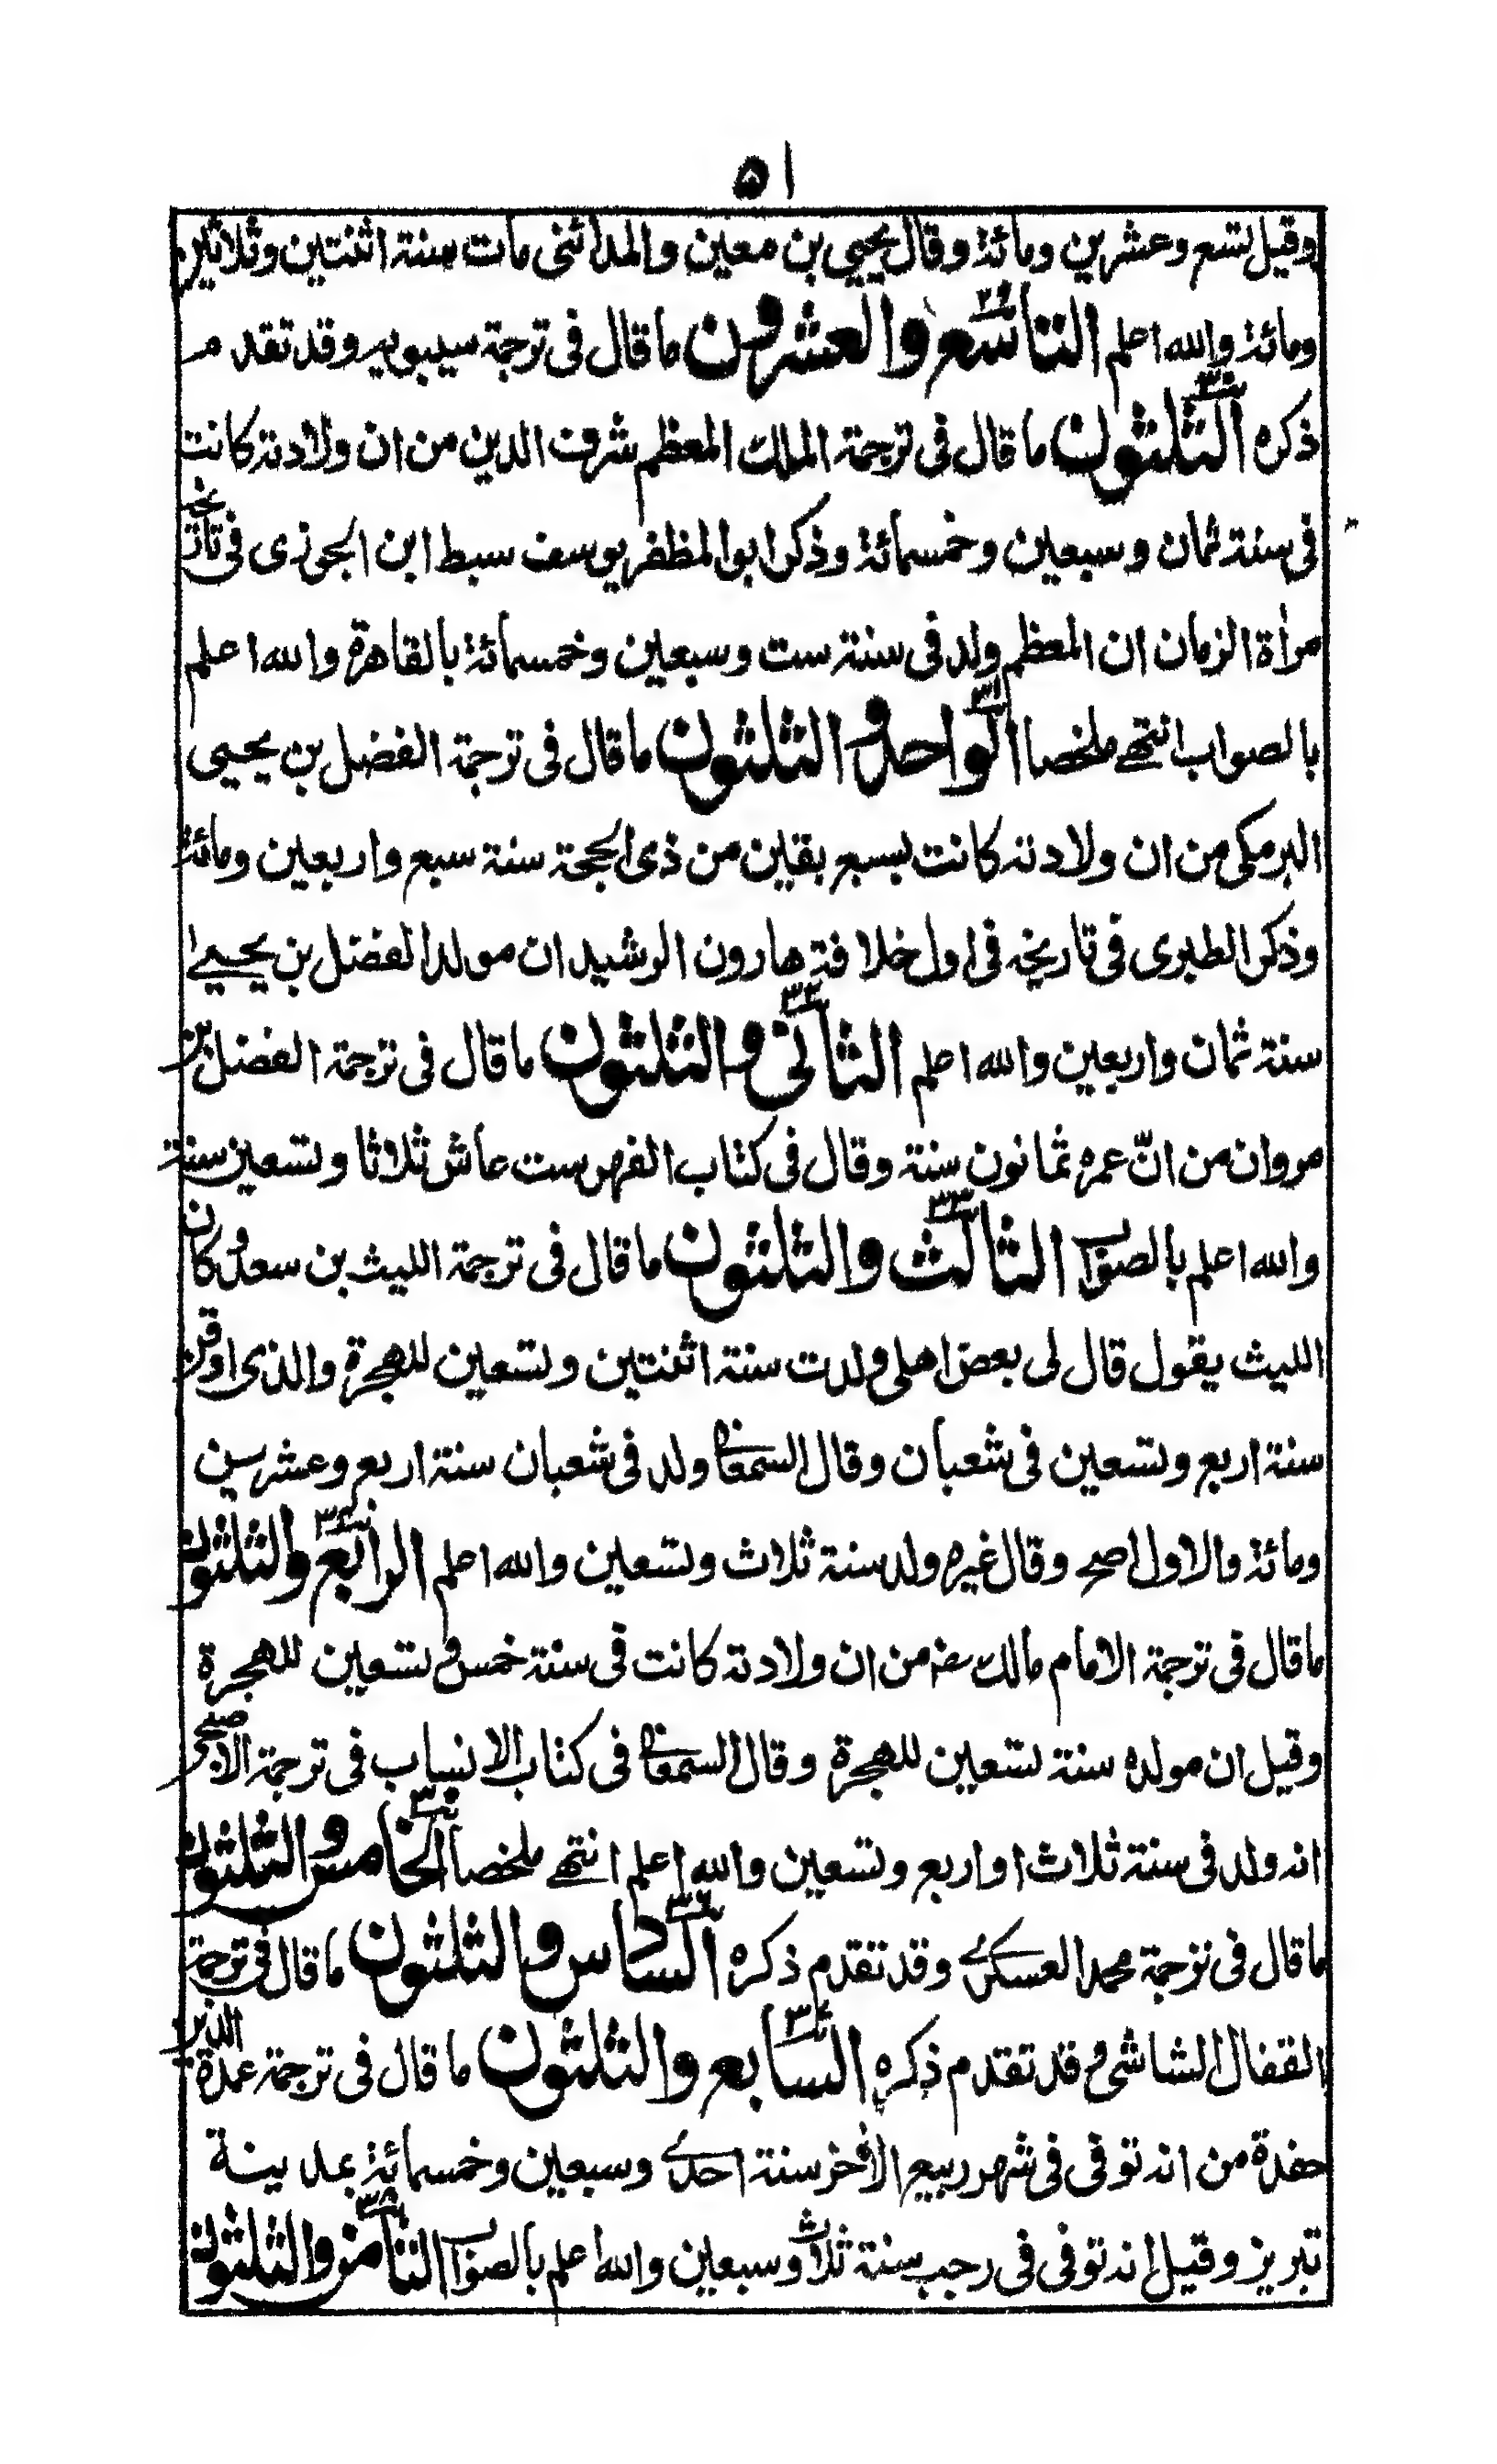 ٥١
وقيل تسع وعشرين ومائة وقال يحيى بن معين والمدائنى مات سنة اثنتين وثلاثين
ومائة والله اعلم التاسع والعشرون ما قال فى ترجمة سيبويه وقد تقدم
ذكره الثلثون ما قال فى ترجمة الملك المعظم شرف الدين من ان ولادته كانت
فى سنة ثمان وسبعين وخمسمائة وذكر ابو المظفر يوسف سبط ابن الجوزى فى تاريخه
مرأة الزمان ان المعظم ولد فى سنة ست وسبعين وخمسمائة بالقاهرة والله اعلم
بالصواب انتهے ملخصا الواحد والثلثون ما قال فى ترجمة الفضل بن يحيى
البرمكى من ان ولادته كانت لسبع بقين من ذى الحجة سنة سبع واربعين ومائة
وذكر الطبرى فى تاريخه فى اول خلافة هارون الرشيد ان مولد الفضل بن يحيے
سنة ثمان واربعين والله اعلم الثانى والثلثون ما قال فى ترجمة الفضل بن
مروان من انّ عمره ثمانون سنة وقال فى كتاب الفهرست عاش ثلاثا وتسعين سنة
والله اعلم بالصواب الثالث والثلثون ما قال فى ترجمة الليث بن سعد وكان
الليث يقول قال لى بعض اهلى ولدت سنة اثنتين وتسعين للهجرة والذى اوقن
سنة اربع وتسعين فى شعبان وقال السمعانے ولد فى شعبان سنة اربع وعشرين
ومائة والاول اصح وقال غيره ولد سنة ثلاث وتسعين والله اعلم الرابع والثلثون
ما قال فى ترجمة الامام مالك من ان ولادته كانت فى سنة خمس وتسعين للهجرة
وقيل ان مولده سنة تسعين للهجرة وقال السمعانے فى كتاب الانساب فى ترجمة الاصبحى
انه ولد فى سنة ثلاث او اربع وتسعين والله اعلم انتهے ملخصا الخامس والثلثون
ما قال فى ترجمة محمد العسكرے وقد تقدم ذكره السادس والثلثون ما قال فى ترجمة
القفال الشاشى وقد تقدم ذكره السابع والثلثون ما قال فى ترجمة عمدة الدين
حفدة من انه توفى فى شهر ربيع الأخر سنة احدے وسبعين وخمسمائة بمدينة
تبريز وقيل انه توفى فى رجب سنة ثلاث وسبعين والله اعلم بالصواب الثامن والثلثون